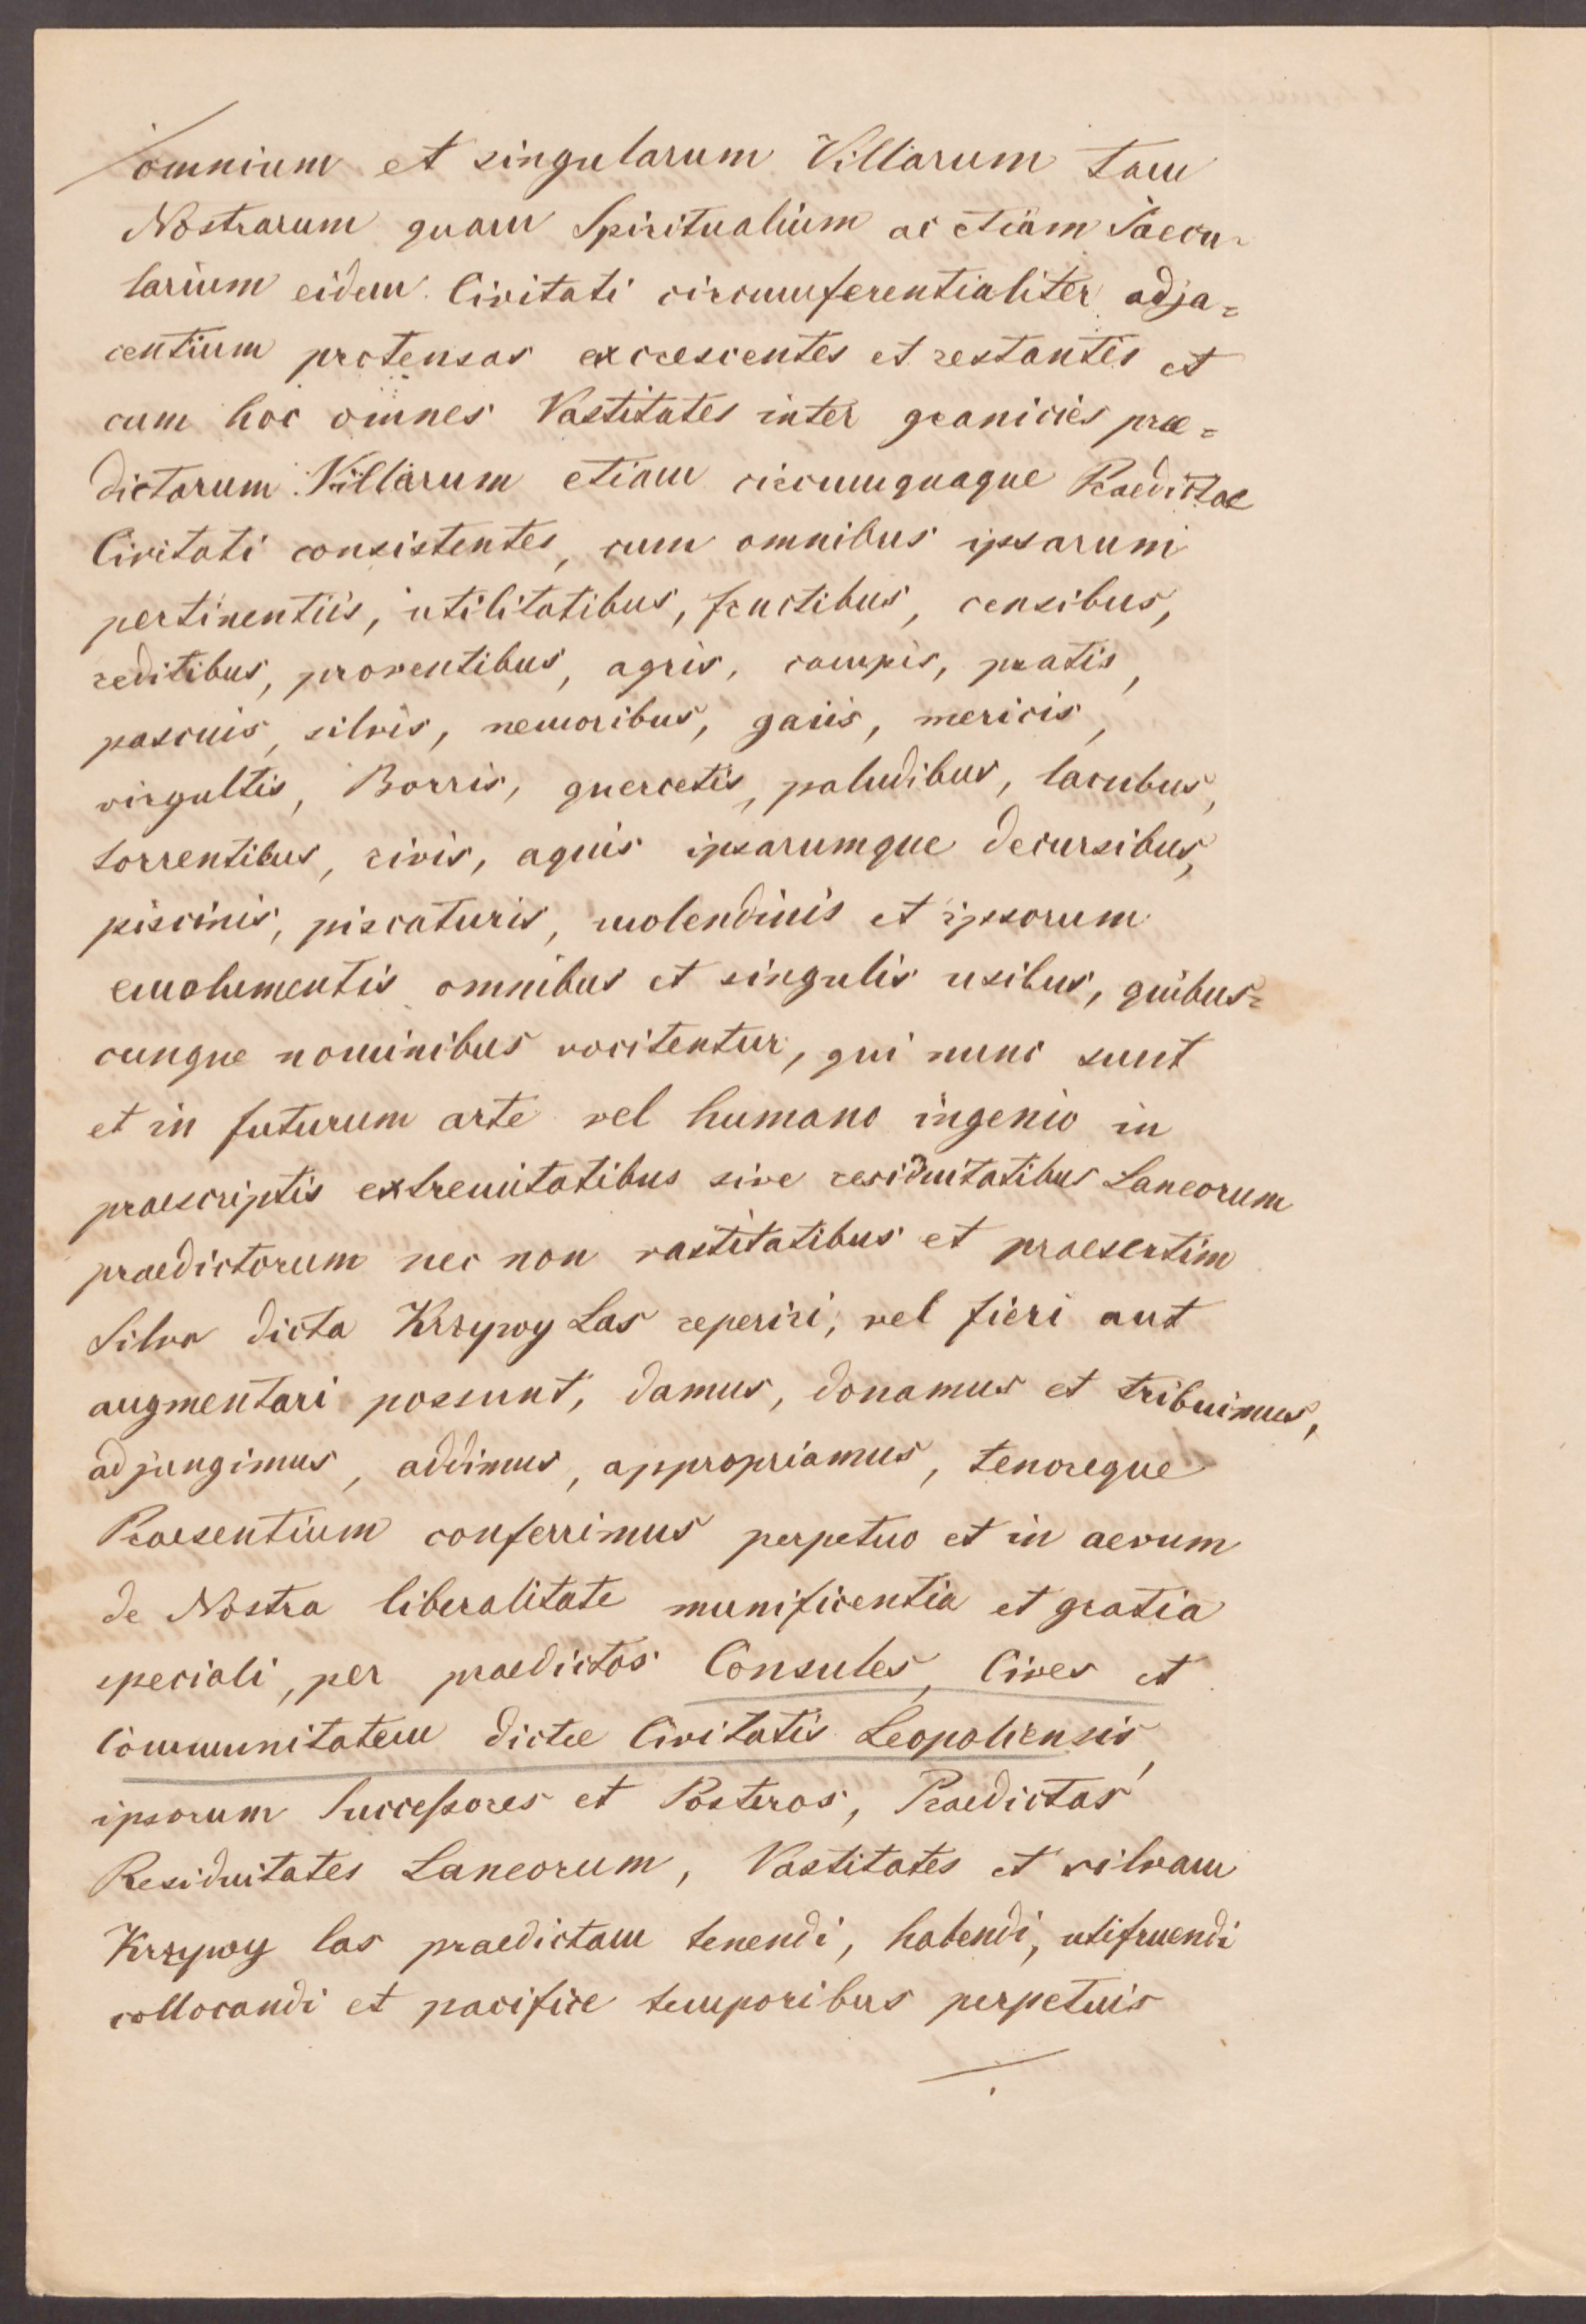 omnium et singularum Villarum tam
Nostrarum quam Spiritualium ac etiam Saecu-
larium eidem Civitati circumferentialiter adja=
centium protensas excrescentes et restantes et
cum hoc omnes Vastitates inter granicies prae=
dictarum Villarum etiam circumquaque Praedictae
Civitati consistentes, cum omnibus ipsarum
pertinentiis, utilitatibus, fructibus, censibus,
reditibus, proventibus, agris, campis, pratis,
pascuis, silvis, nemoribus, gaiis, mericis,
virgultis, Borris, quercetis, paludibus, lacubus,
torrentibus, rivis, aquis ipsarumque decursibus,
piscinis, piscaturis, molendinis et ipsorum
emolumentis omnibus et singulis usibus, quibus=
cunque nominibus vocitentur, qui nunc sunt
et in futurum arte vel humano ingenio in
praescriptis extremitatibus sive residuitatibus Laneorum
praedictorum nec non vastitatibus et praesertim
Silva dicta Krzywy Las reperiri, vel fieri aut
augmentari possunt, damus, donamus et tribuimus,
adjungimus, addimus, appropriamus, tenoreque
Praesentium conferrimus perpetuo et in aevum
de Nostra liberalitate munificentia et gratia
speciali, per praedictos Consules, Cives et
Communitatem dictae Civitatis Leopoliensis,
ipsorum Successores et Posteros, Praedictas
Residuitates Laneorum, Vastitates et silvam
Krzywy las praedictam tenendi, habendi, utifruendi
collocandi et pacifice temporibus perpetuis